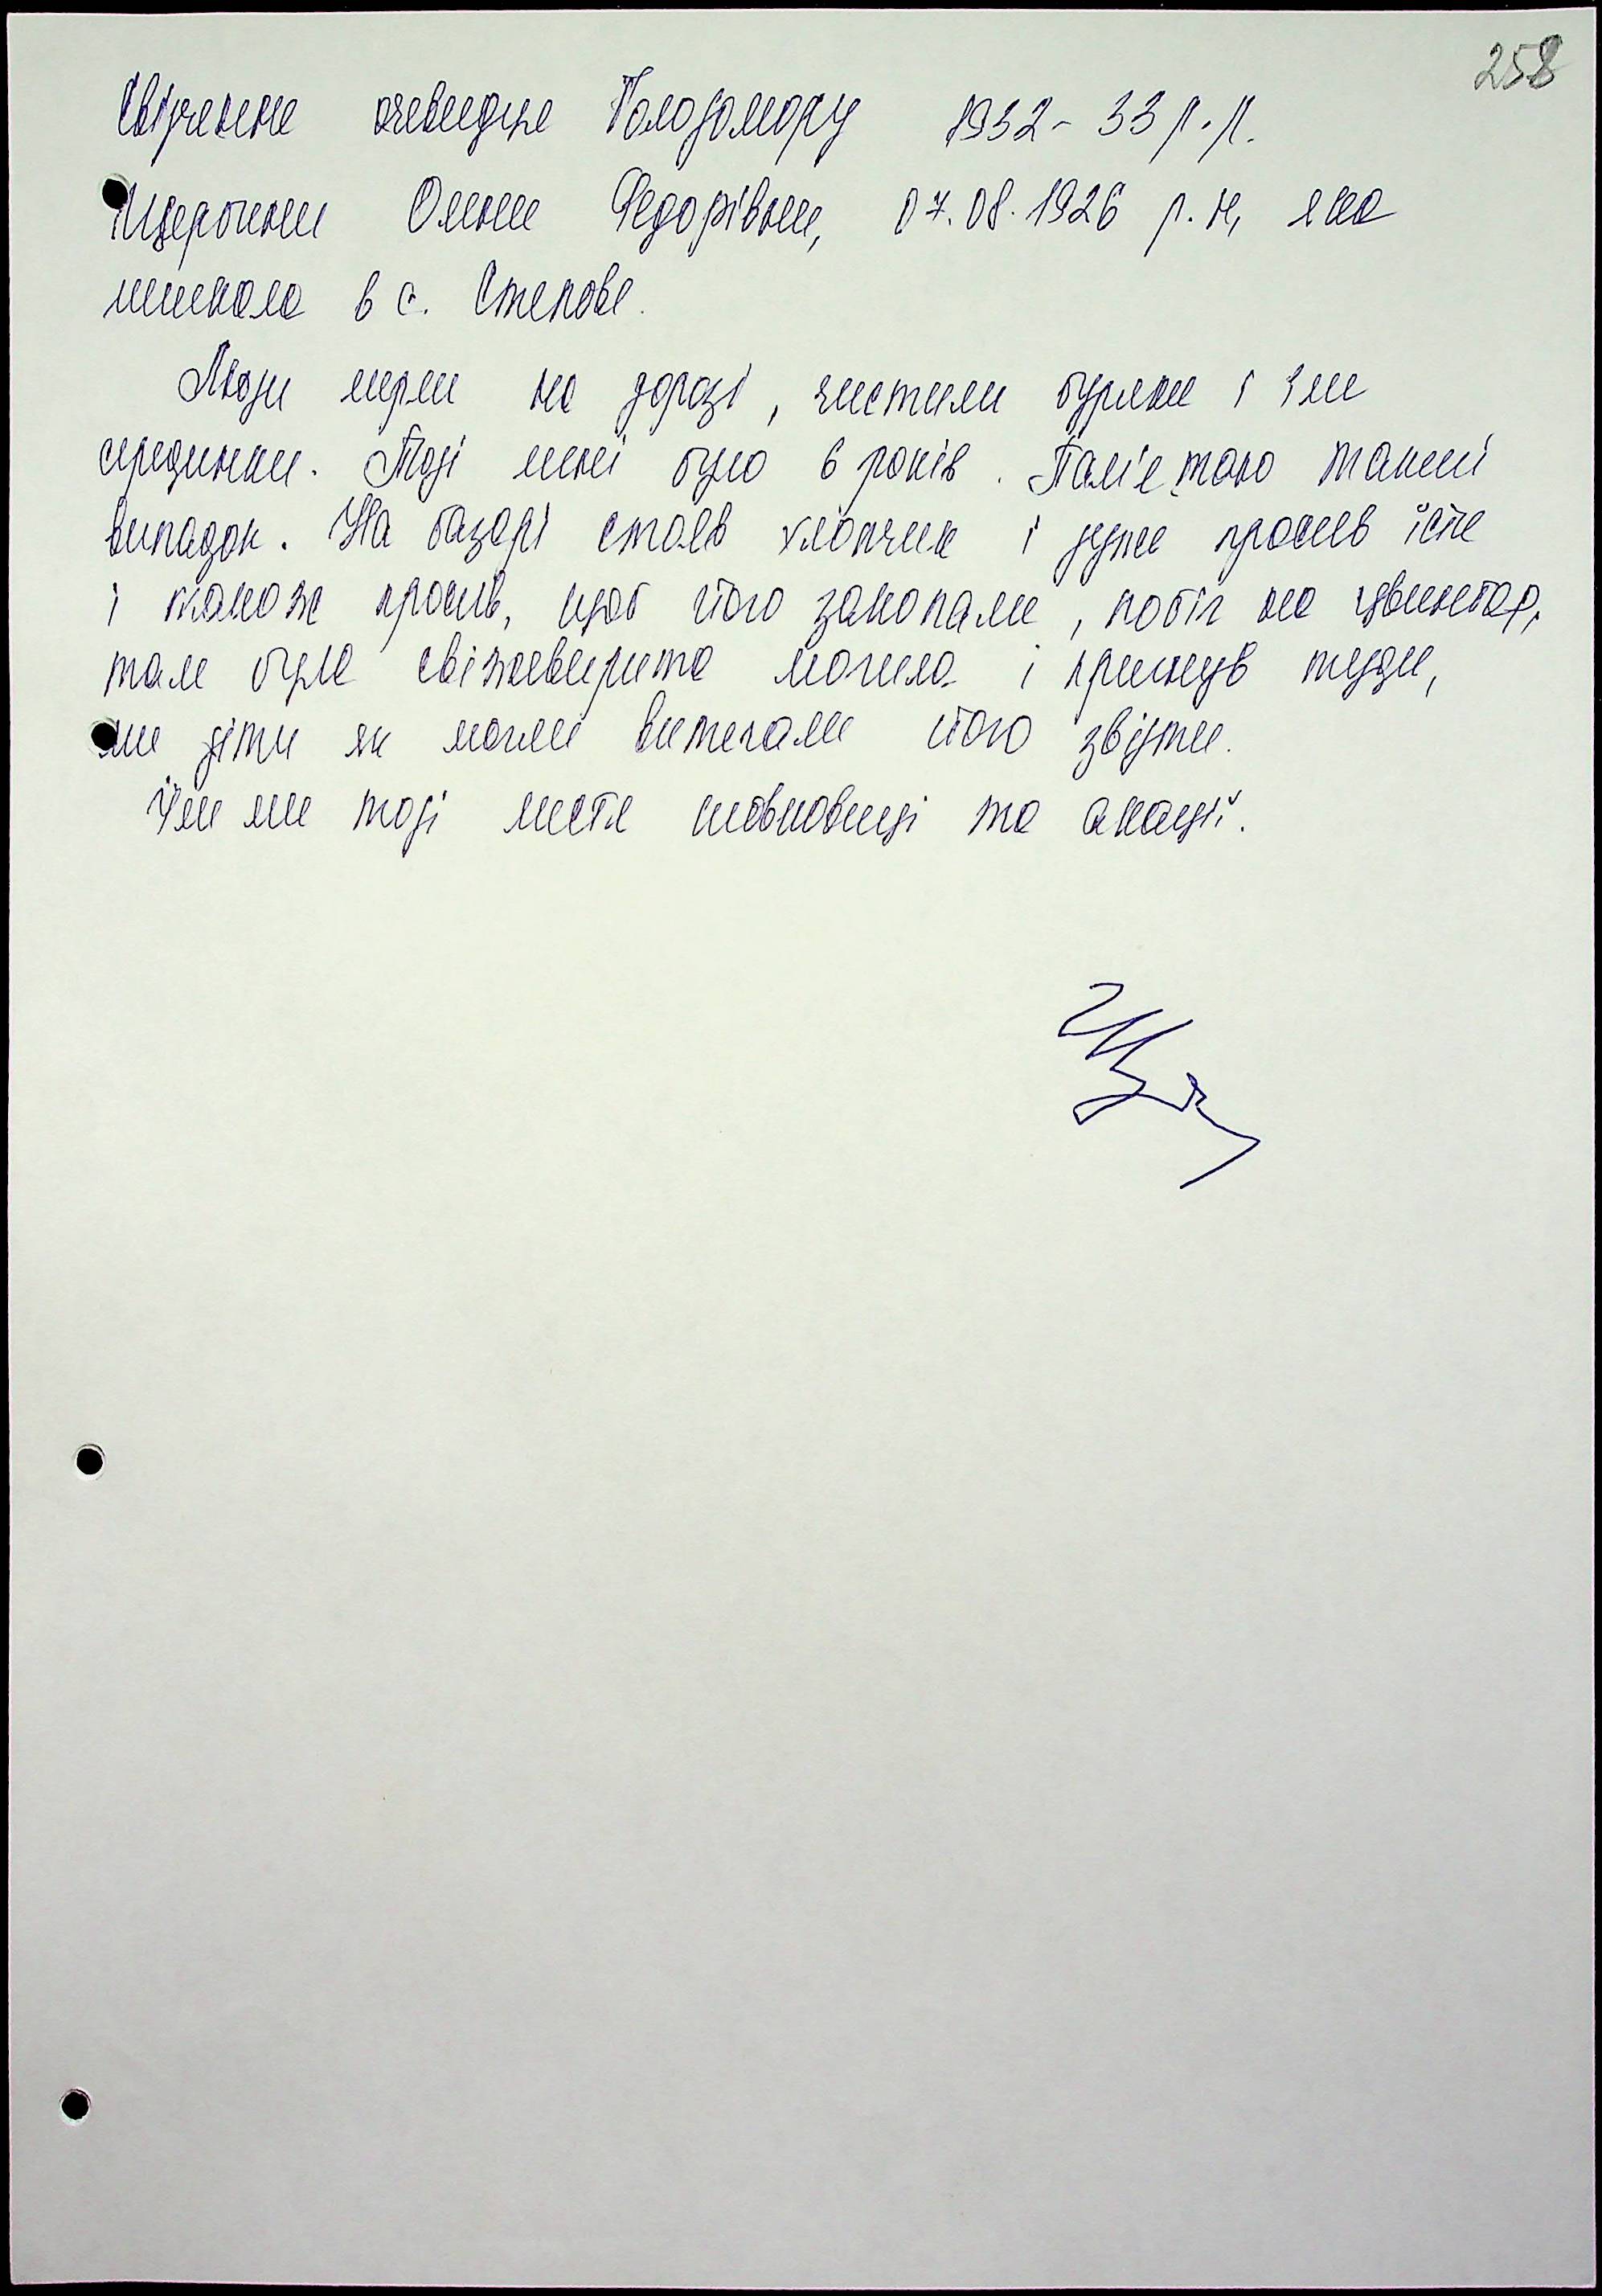 258
Свідчення очевидця Голодомору 1932-33 р.р.
Щербини Олени Федорівни, 07.08.1926 р.н, яка
мешкала в с. Степове.
Люди мерли на дорозі, чистили буряки і їли
серединки. Тоді мені було 6 років. Пам'ятаю такий
випадок. На базарі стояв хлопчик і дуже просив їсти
і також просив, щоб його закопали, побіг на цвинтар,
там була свіжевирита могила і пригнув туди,
ми діти як могли витягали його звідти.
Їли ми тоді листя шовковиці та акації.